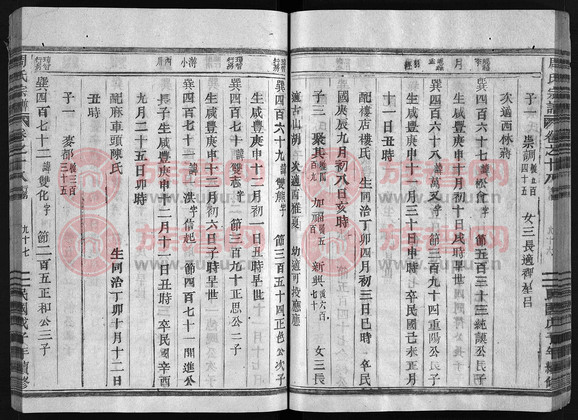 周氏宗譜
子一 崇訓 女三長適釋皇呂
次適西林蔣
巽四百六十七 諱 松會 字 節五百三十三純謨公子
生咸豐庚申十月初十日戌時早世
巽四百六十八 諱 萬义 字 節三百九十四重陽公子
生咸豐庚申二月三十日申時 卒民國己未正月
十一日丑時
配樓店樓氏 生同治丁卯四月初三日巳時 卒民
國庚辰九月初八日亥時
子三 聚其 加 新興 女三長
適古山胡 次適西雅吳 幼適可投應
巽四百六十九 諱 雙熊 字 節三百五十四正邑公次子
生咸豐庚申十二月初一日丑時早世
巽四百七十 諱 雙志 字 節三百九十正思公二子
生咸豐庚申十二月初六日子時早世
巽四百七十一 諱 洪 字 信起 節四百七十一開進公
長子 生咸豐庚申十二月十一日丑時 卒民國辛酉
九月二十五日卯時
配麻車頭陳氏 生同治丁卯十月十二日
丑時
子一 麥郎
巽四百七十二 諱 雙化 字 節二百五正和公三子
周氏宗譜
卷之十八
九十七
民國戊子年續修